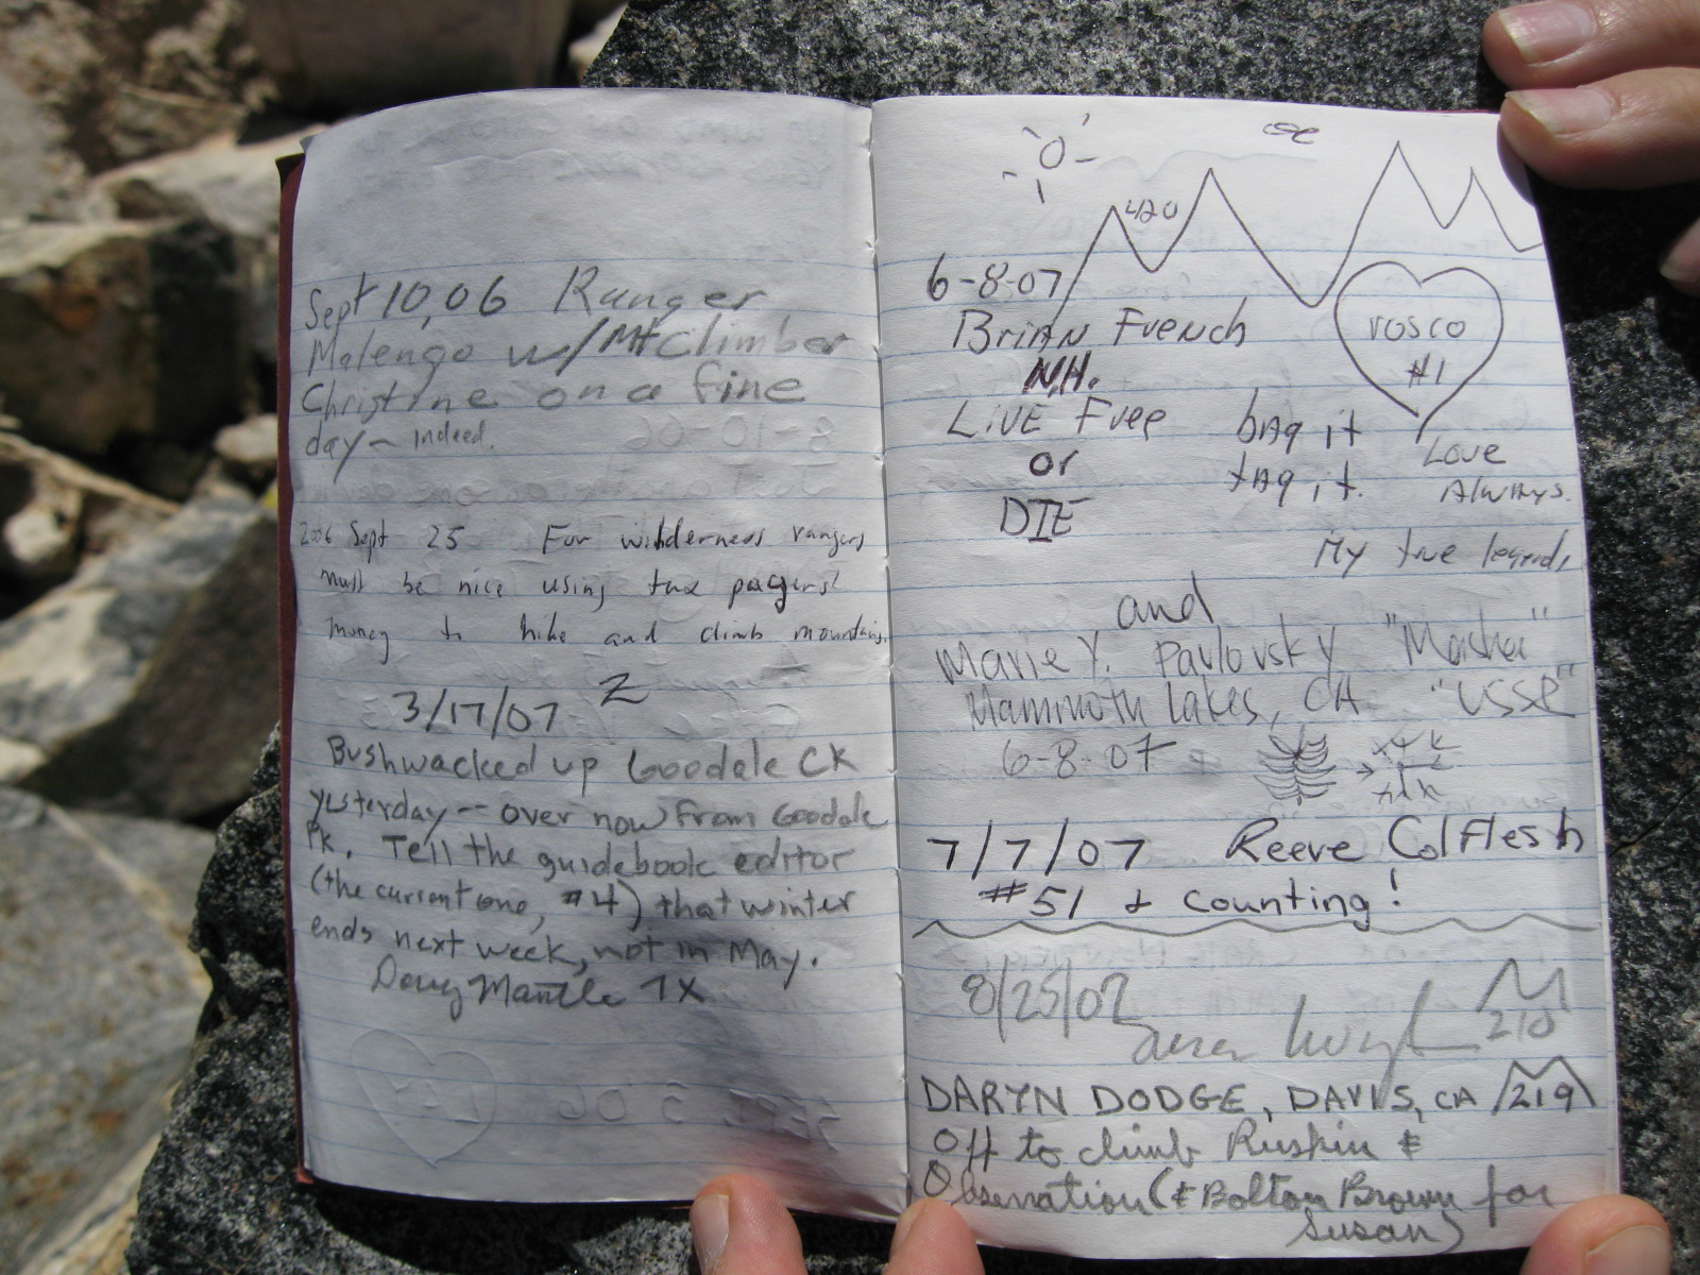 Sept 10, 06 Ranger
Molengo w/ Mt Climber
Christine on a fine
day – indeed.
2006 Sept 25 Fur wilderness rangers
must be nice using tax pagers'
money to hike and climb mountains.
Z
3/17/07
Bushwacked up Goodale CK
yesterday -- over now from Goodale
Pk. Tell the guidebook editor
(the current one, #4) that winter
ends next week, not in May.
Doug Mantle 7X
420
6-8-07
Brian French
N.H.
LiVE Free
or
DIE
rosco
#1
bag it
tag it.
Love
Always.
My true legend,
and
Marie Y. Pavlovsky "Masha"
Mammoth Lakes, CA "USSR"
6-8-07
7/7/07 Reeve Colflesh
#51 & counting!
8/25/07
210
DARYN DODGE, DAVIS, CA 219
Off to climb Ruskin &
Observation (& Bolton Brown for
Susan)